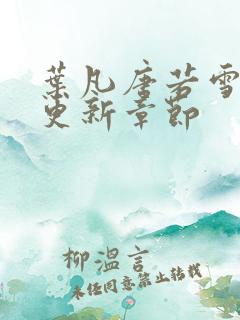 葉凡唐若雪
更新章節
柳溫言
未經同意禁止轉載